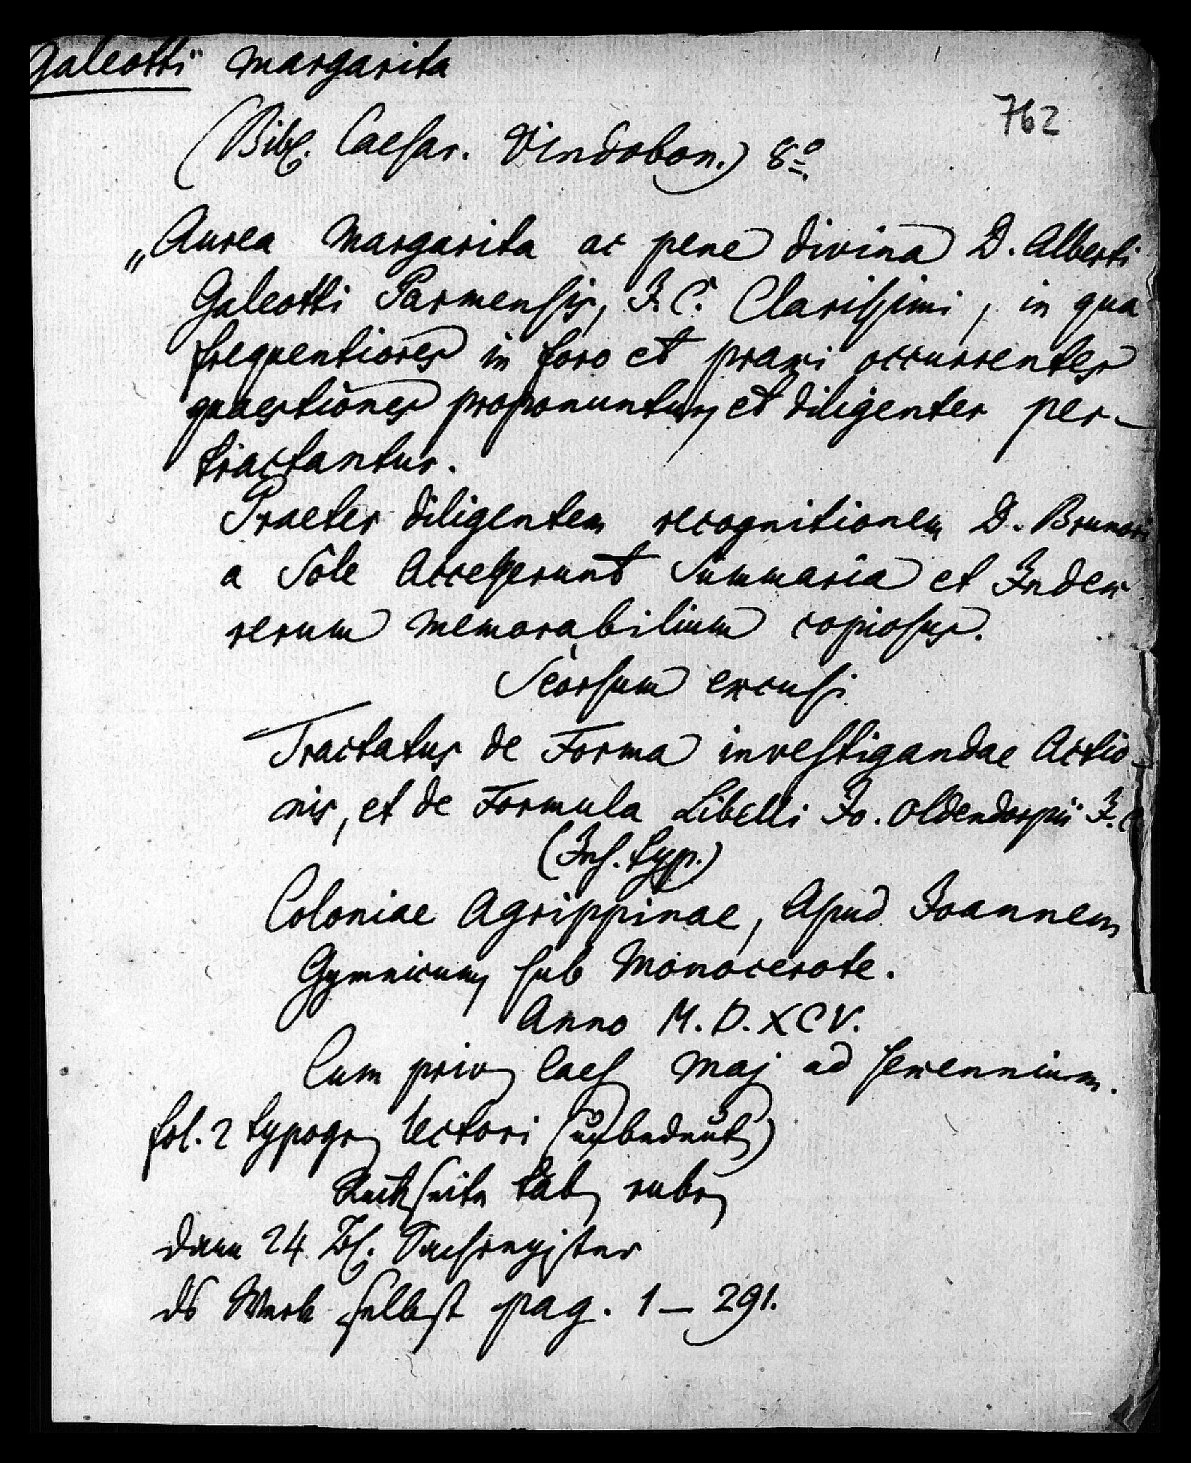 Galeotti" Margarita
762
(Bibl. Caesar. Vindobon.) 8º.
„Aurea Margarita ac pene divina D. Alberti
Galeotti Parmensis, J. C. Clarissimi, in qua
frequentiores in foro et praxi occurrentes
quaestiones proponuntur, et diligenter per-
tractantur.
Praeter diligentem recognitionem D. Brunori
a Sole Accesserunt Summaria et Index
rerum memorabilium copiosus.
Seorsum excusi
Tractatus de Forma investigandae Actio-
nis, et de Formula Libelli Jo. Oldendorpii J. C
(Ins. typ.)
Coloniae Agrippinae, Apud Joannem
Gymnicum, sub Monocerote.
Anno M.D.XCV.
Cum priv Caes Maj ad sexennium.
fol. 2 typogr lectori (unbedeut)
Rückseite tab rubr
dann 24 Bl. Sachregister
ds Werk selbst pag. 1 – 291.